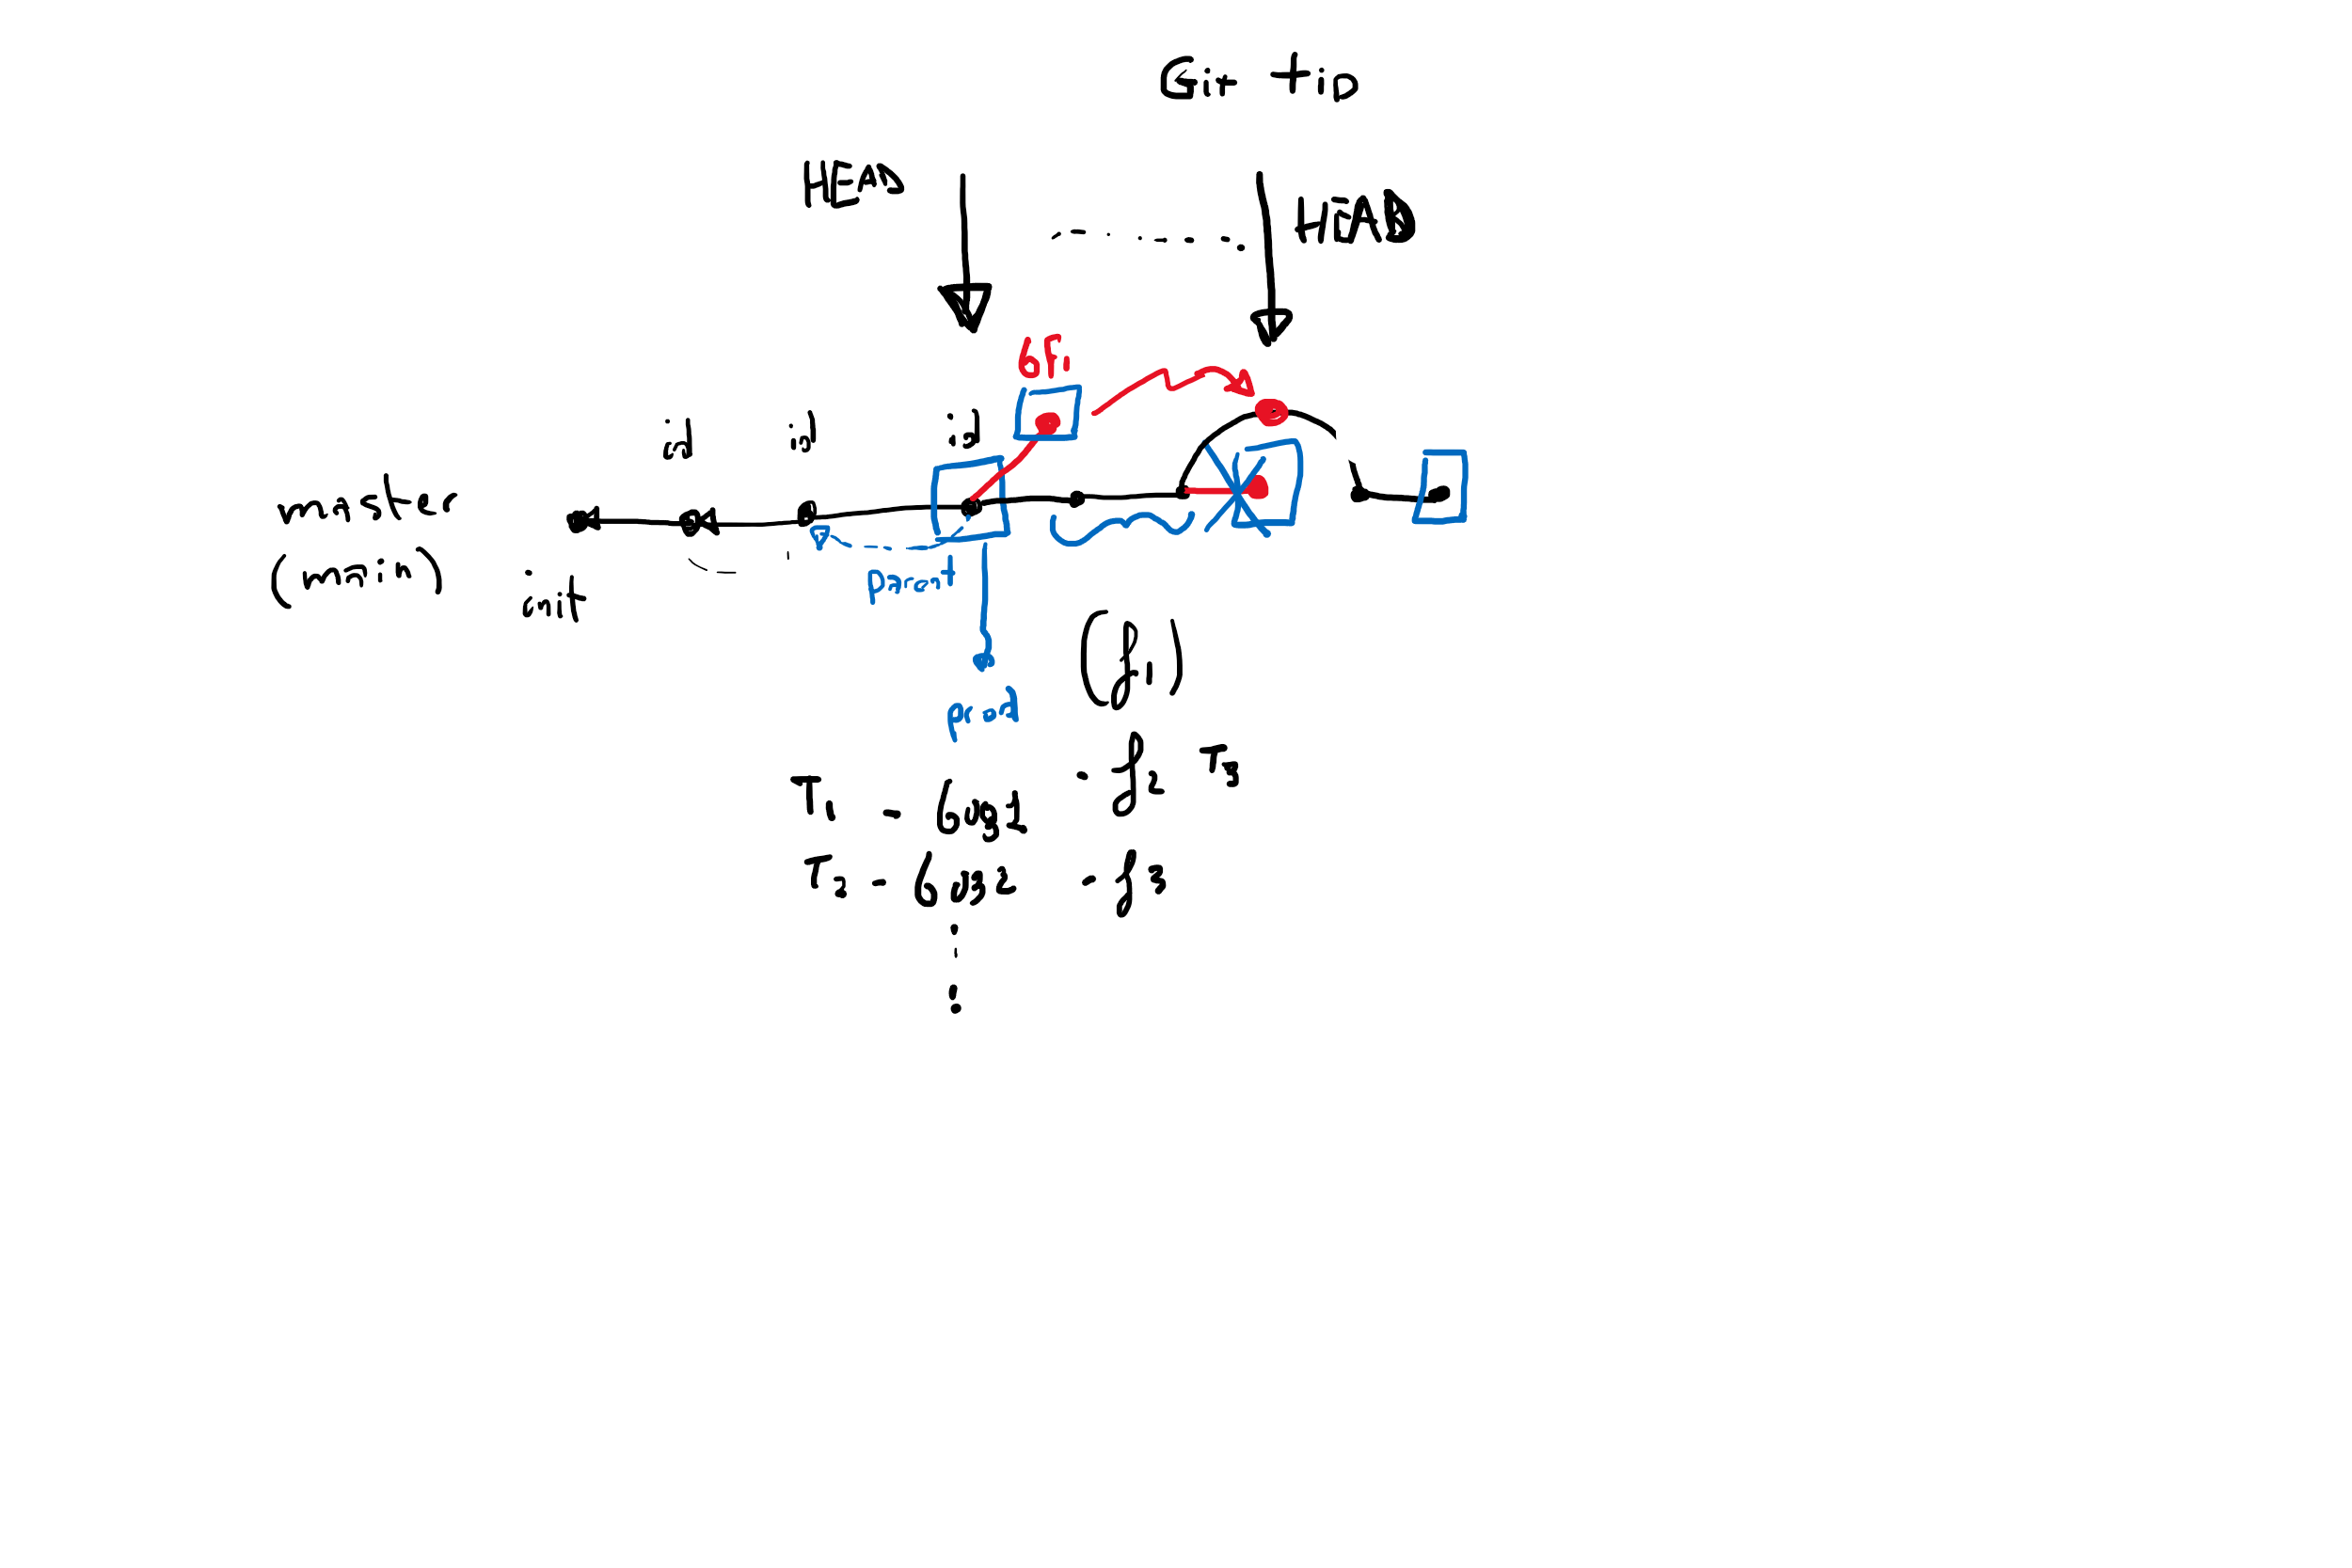 Git tip
HEAD
HEAD
bf1
id
id
id
master
(main)
init
parent
(f1)
prod
T1 - bug1
- f2 T3
T2 - bug2
- f3